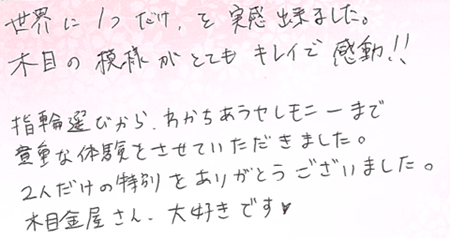 世界に1つだけ、を実感出来ました。
木目の模様がとてもキレイで感動!!
指輪選びから、わかちあうセレモニーまで
貴重な体験をさせていただきました。
2人だけの特別をありがとうございました。
木目金屋さん、大好きです♥